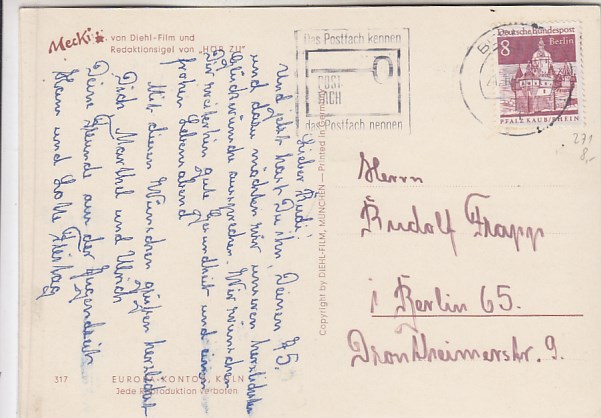 Mecki von Diehl-Film und
Redaktionsigel von "HÖR ZU"
Das Postfach kennen
POST
FACH
das Postfach nennen
Deutsche Bundespost
8 Berlin
PFALZ KAUB/RHEIN
271
8,-
Lieber Rudi,
und jetzt hast Du ihn, Deinen 75.
und dazu möchten wir unseren herzlichsten
Glückwunsch aussprechen. Wir wünschen
Dir weiterhin gute Gesundheit und einen
frohen Lebensabend
Mit diesen Wünschen grüßen herzlichst
Dich, Marthel und Ulrich
Deine Freunde aus der Jugendzeit
Hann und Lotte
Copyright by DIEHL-FILM, MÜNCHEN — Printed in Germany
Herrn
Rudolf Trapp
1 Berlin 65.
Drontheimerstr. 9.
317 EUROPA-KONTOR, KÖLN
Jede Reproduktion verboten